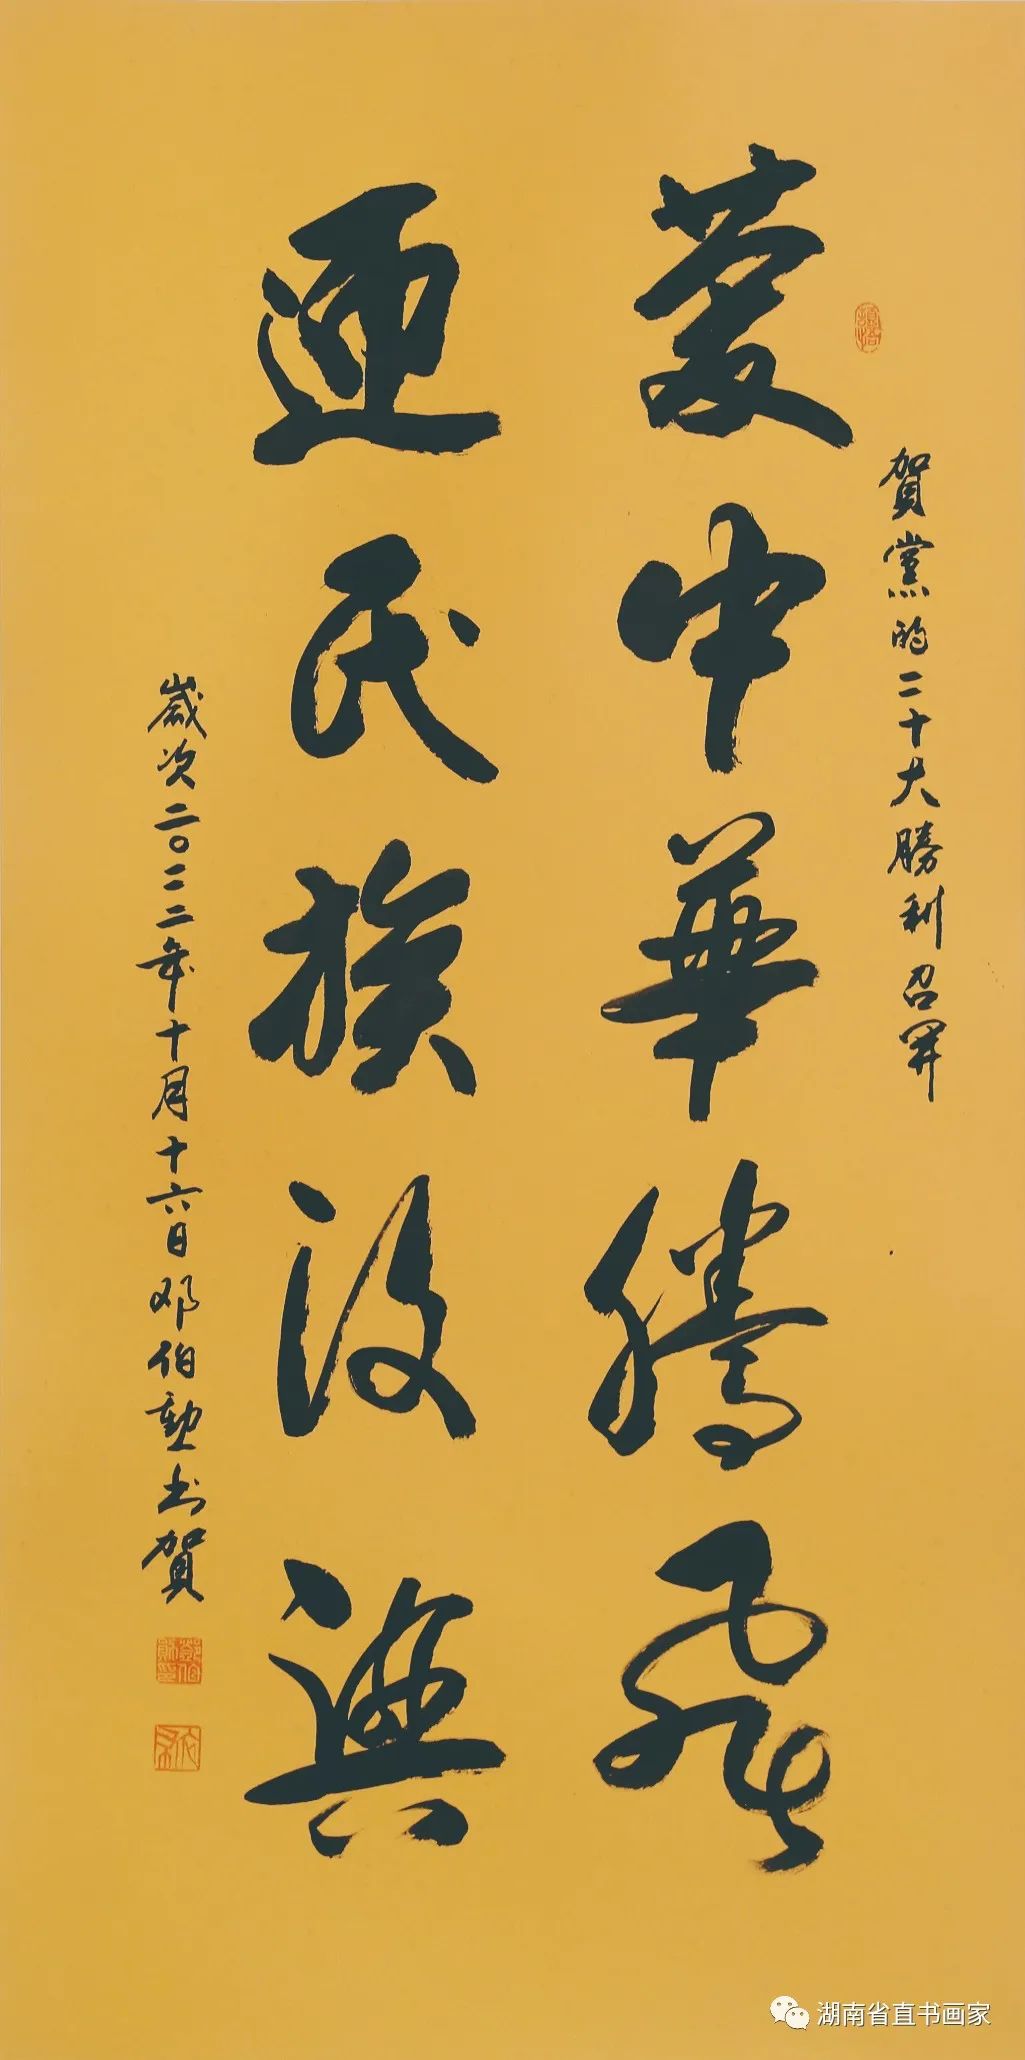 賀黨的二十大勝利召開
慶中華騰飛
迎民族復興
歲次二〇二二年十月十六日邓伯勳书賀
湖南省直书画家